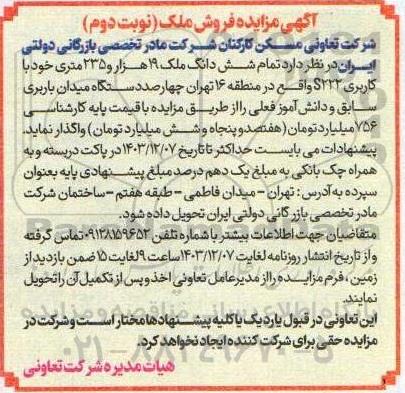 آگهی مزایده فروش ملک (نوبت دوم)
شرکت تعاونی مسکن کارکنان شرکت مادر تخصصی بازرگانی دولتی
ایران در نظر دارد تمام شش دانگ ملک ۱۹ هزار و ۲۳۵ متری خود با
کاربری S۲۲۲ واقع در منطقه ۱۶ تهران چهارصد دستگاه میدان باربری
سابق و دانش آموز فعلی را از طریق مزایده با قیمت پایه کارشناسی
۷۵۶ میلیارد تومان (هفتصد و پنجاه و شش میلیارد تومان) واگذار نماید.
پیشنهادات می بایست حداکثر تا تاریخ ۱۴۰۳/۱۲/۰۷ در پاکت دربسته و به
همراه چک بانکی به مبلغ یک دهم درصد مبلغ پیشنهادی پایه بعنوان
سپرده به آدرس: تهران - میدان فاطمی - طبقه هفتم - ساختمان شرکت
مادر تخصصی بازرگانی دولتی ایران تحویل داده شود.
متقاضیان جهت اطلاعات بیشتر با شماره تلفن ۰۹۱۳۸۱۵۹۶۵۲ تماس گرفته
و از تاریخ انتشار روزنامه لغایت ۱۴۰۳/۱۲/۰۷ ساعت ۹ لغایت ۱۵ ضمن بازدید از
زمین، فرم مزایده را از مدیرعامل تعاونی اخذ و پس از تکمیل آن را تحویل
نمایند.
این تعاونی در قبول یا رد یک یا کلیه پیشنهادها مختار است و شرکت در
مزایده حقی برای شرکت کننده ایجاد نخواهد کرد.
هیات مدیره شرکت تعاونی